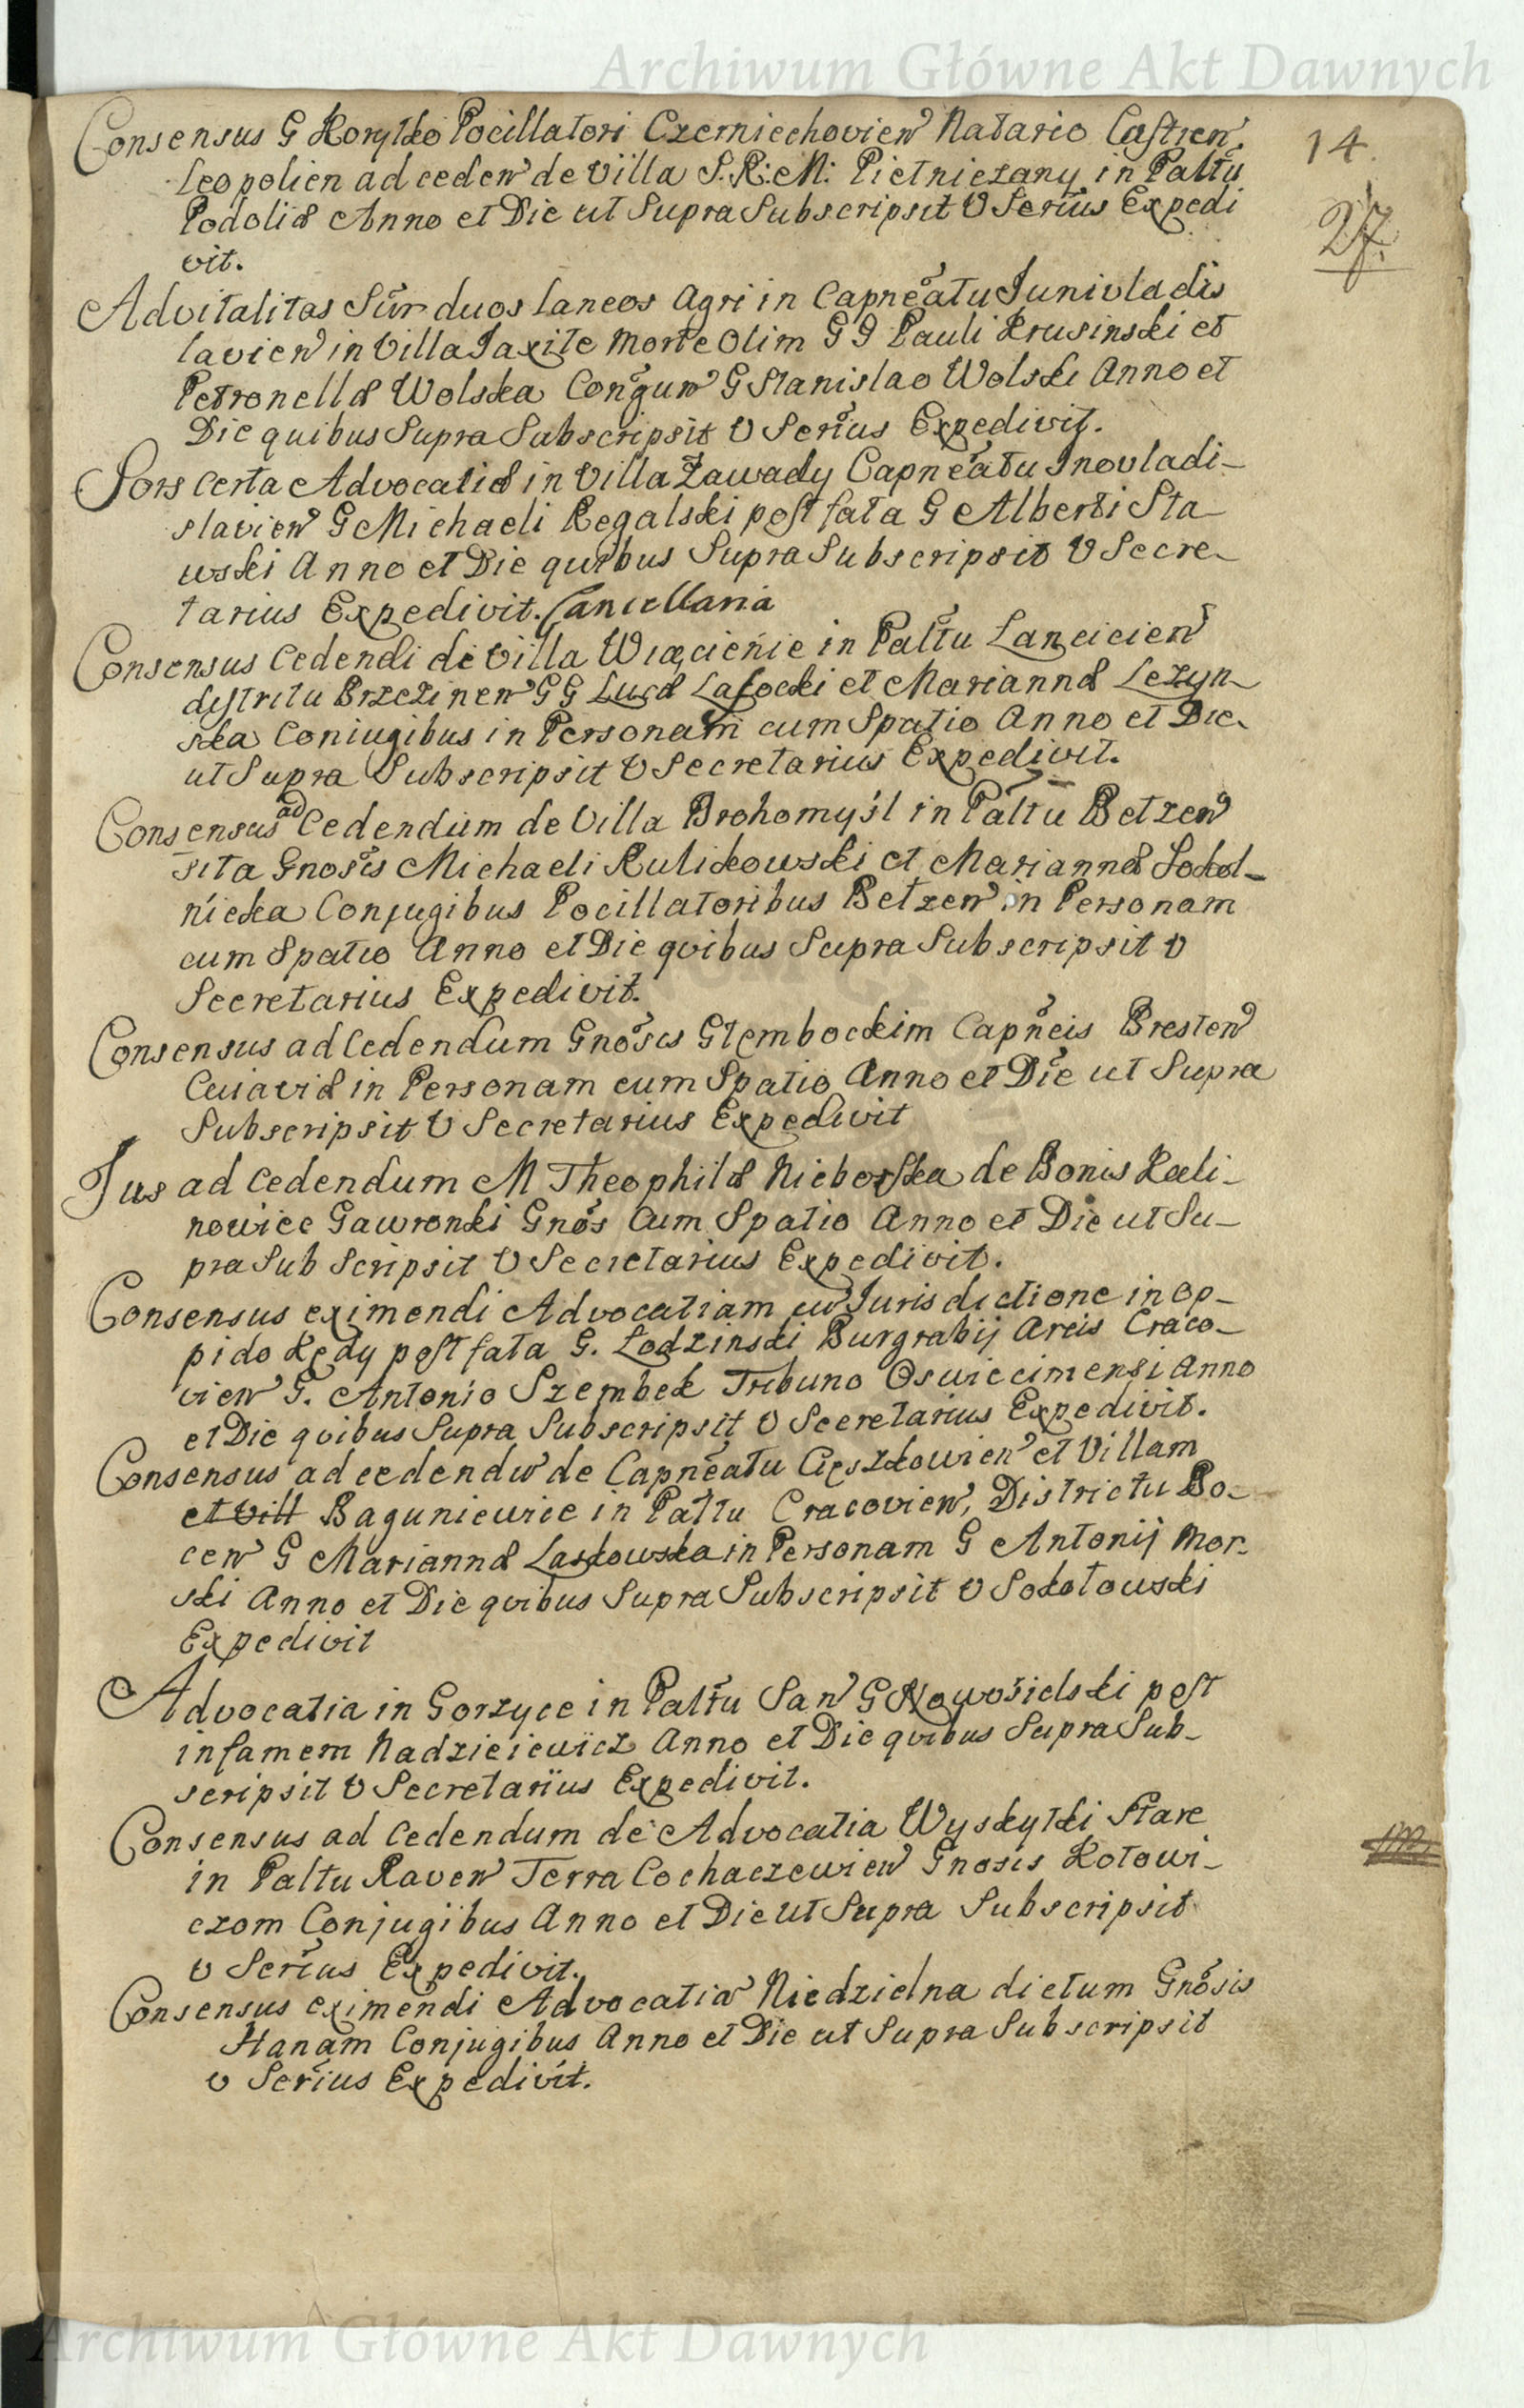 Archiwum Główne Akt Dawnych
14.
27.
Consensus G Korytko Pocillatori Czerniechovien Natario Castren
Leopolien ad ceden de Villa S. R: M: Pietniczany in Paltu
Podoliæ Anno et Die ut Supra Subscripsit V Serius Expedi
vit.
Advitalitas Sur duos laneos Agri in Capneatu Junivladis
lavien in Villa Jaxite morte Olim G G Pauli Krusinski et
Petronellæ Wolska Congun G Stanislao Wolski Anno et
Die quibus Supra Subscripsit V Serius Expedivit.
Sors certa Advocatiæ in Villa Zawady Capneatu Inovladi-
slavien G Michaeli Regalski post fata G Alberti Sta-
wski Anno et Die quibus Supra Subscripsit V Secre-
tarius Expedivit. Cancellaria
Consensus Cedendi de Villa Wiącienie in Paltu Lancicien
distritu Brzezinen G G Lucæ Lasocki et Mariannæ Lezyn-
ska Coniugibus in Personam cum Spatio Anno et Die
ut Supra Subscripsit V Secretarius Expedivit.
Consensus ad Cedendum de Villa Brohomyśl in Paltu Betzen
sita Gnosis Michaeli Kulikowski et Mariannæ Sokol-
nicka Conjugibus Pocillatoribus Betzen in Personam
cum Spatio Anno et Die qvibus Supra Subscripsit V
Secretarius Expedivit.
Consensus ad Cedendum Gnosis Głembockim Capneis Bresten
Cuiaviæ in Personam cum Spatio Anno et Die ut Supra
Subscripsit V Secretarius Expedivit
Jus ad Cedendum M Theophilæ Nieborska de Bonis Kali-
nowice Gawronki Gnos Cum Spatio Anno et Die ut Su-
pra Subscripsit V Secretarius Expedivit.
Consensus eximendi Advocatiam cu Jurisdictione in Op-
pido Kędy post fata G. Lodzinski Burgrabij Arcis Craco-
vien G. Antonio Szembek Tribuno Oswiecimensi Anno
et Die qvibus Supra Subscripsit V Secretarius Expedivit.
Consensus ad cedendu de Capneatu Cięszkowien et Villam
et Vill Baguniewice in Paltu Cracovien, Districtu Bo-
cen G Mariannæ Laskowska in Personam G Antonij Mor-
ski Anno et Die qvibus Supra Subscripsit V Sokołowski
Expedivit
Advocatia in Gorzyce in Paltu San G Nowosielski post
infamem Nadzieiewicz Anno et Die qvibus Supra Sub-
scripsit V Secretarius Expedivit.
Consensus ad Cedendum de Advocatia Wyskytki Stare
in Paltu Raven Terra Cochaczewien Gnosis Kotowi-
czom Conjugibus Anno et Die ut Supra Subscripsit
V Serius Expedivit.
Consensus eximendi Advocatia Niedzielna dictum Gnosis
Hanam Conjugibus Anno et Die ut Supra Subscripsit
V Serius Expedivit.
Archiwum Główne Akt Dawnych